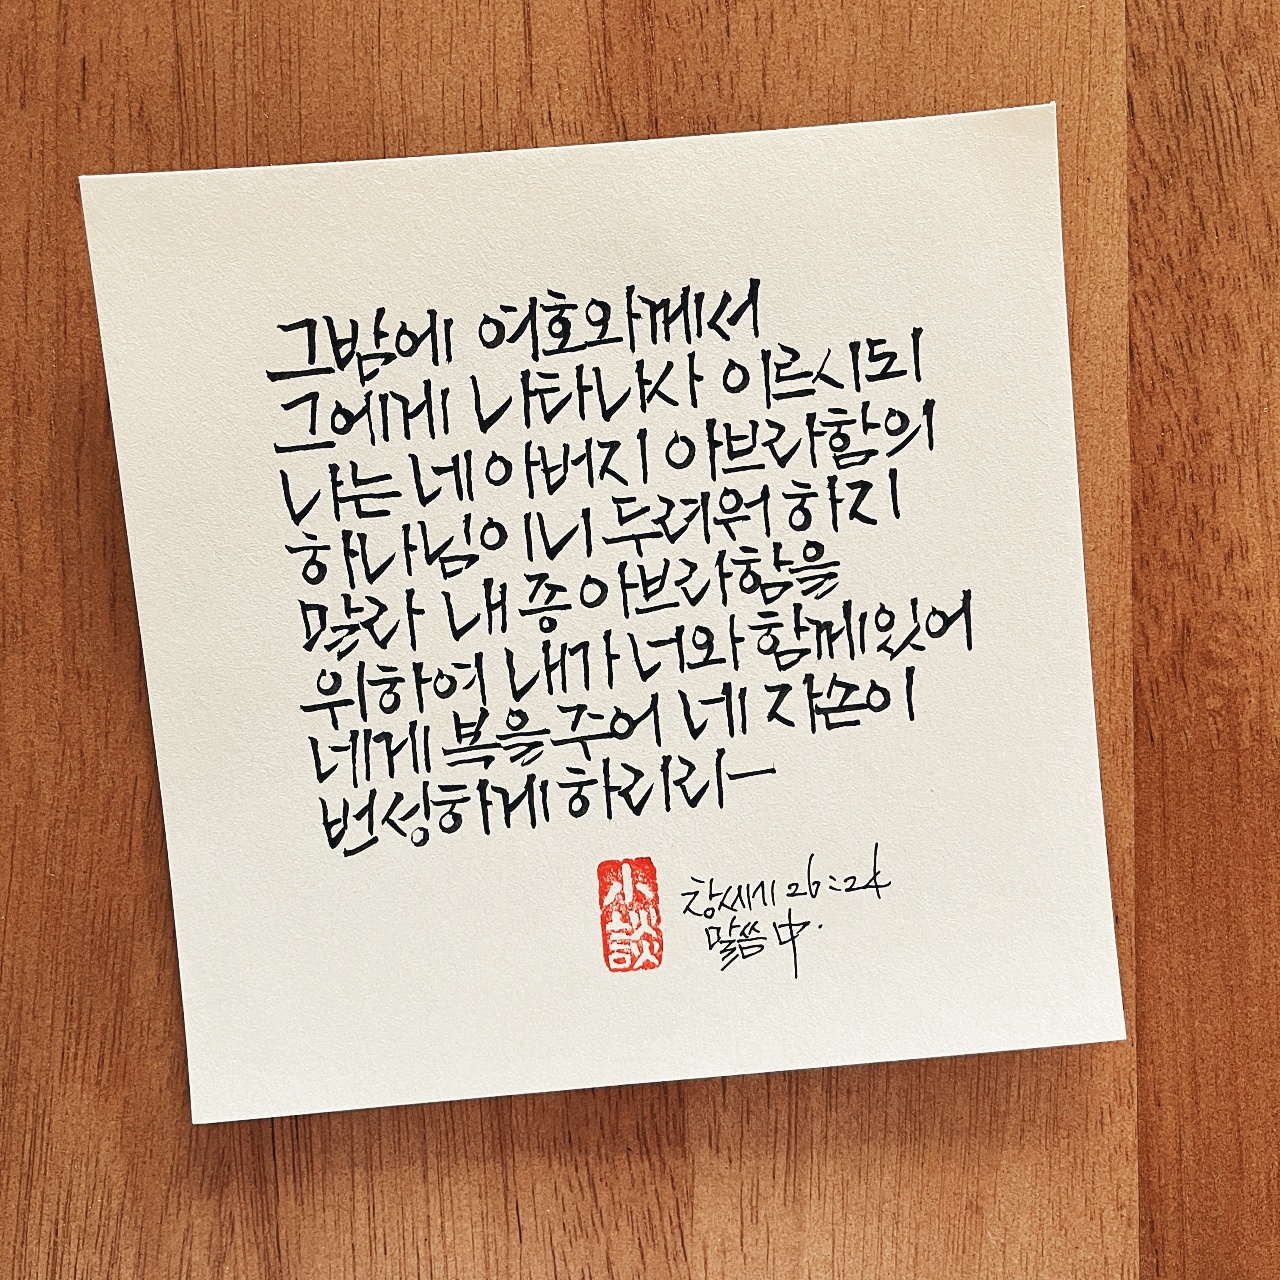 그밤에 여호와께서
그에게 나타나사 이르시되
나는 네 아버지 아브라함의
하나님이니 두려워 하지
말라 내 종 아브라함을
위하여 내가 너와 함께 있어
네게 복을 주어 네 자손이
번성하게 하리라—
小談
창세기 26:24
말씀 中.